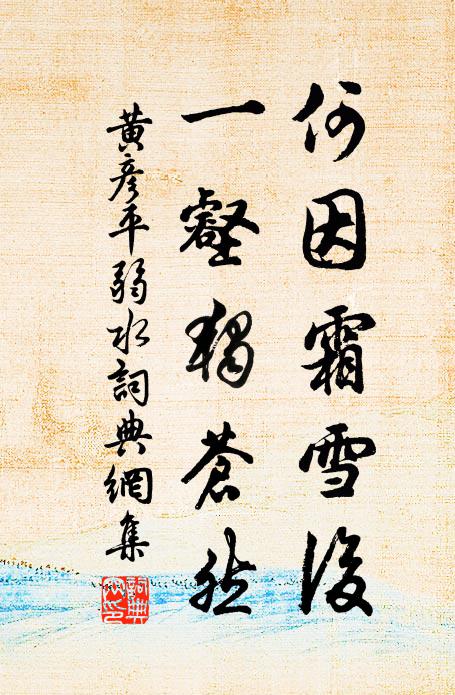 何因霜雪後
一壑獨蒼然
黃彦平弱水詞典網集